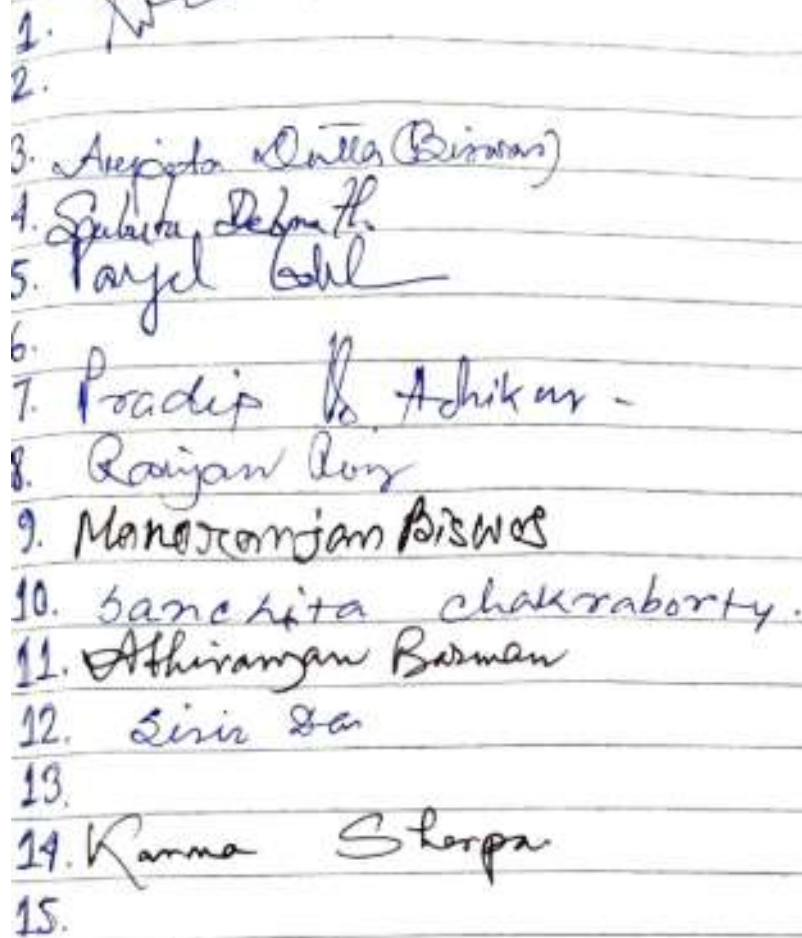 1.
2.
3. Dutta (Biswas)
4. Debnath.
5.
6.
7. Pradip Kr. Adhikary -
8. Ranjan Roy
9. Manoranjan Biswas
10. Sanchita chakraborty.
11. Barman
12. Sisir Das
13.
14. Karma Sherpa
15.